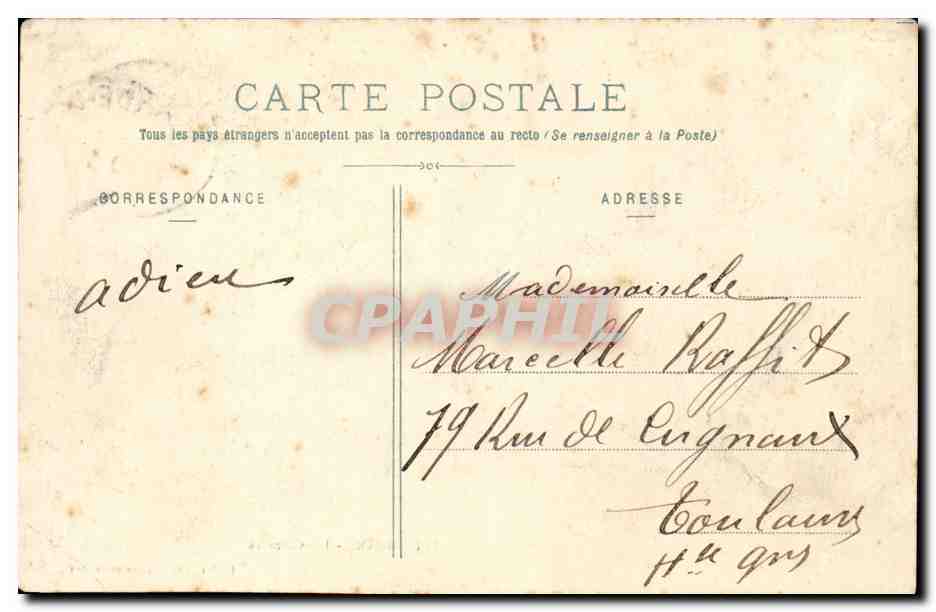 CARTE POSTALE
Tous les pays étrangers n'acceptent pas la correspondance au recto (Se renseigner à la Poste)
CORRESPONDANCE
ADRESSE
adieu
Mademoiselle
CPAPHIL
Marcelle Raffit
79 Rue de Cugnaux
Toulouse
Hte